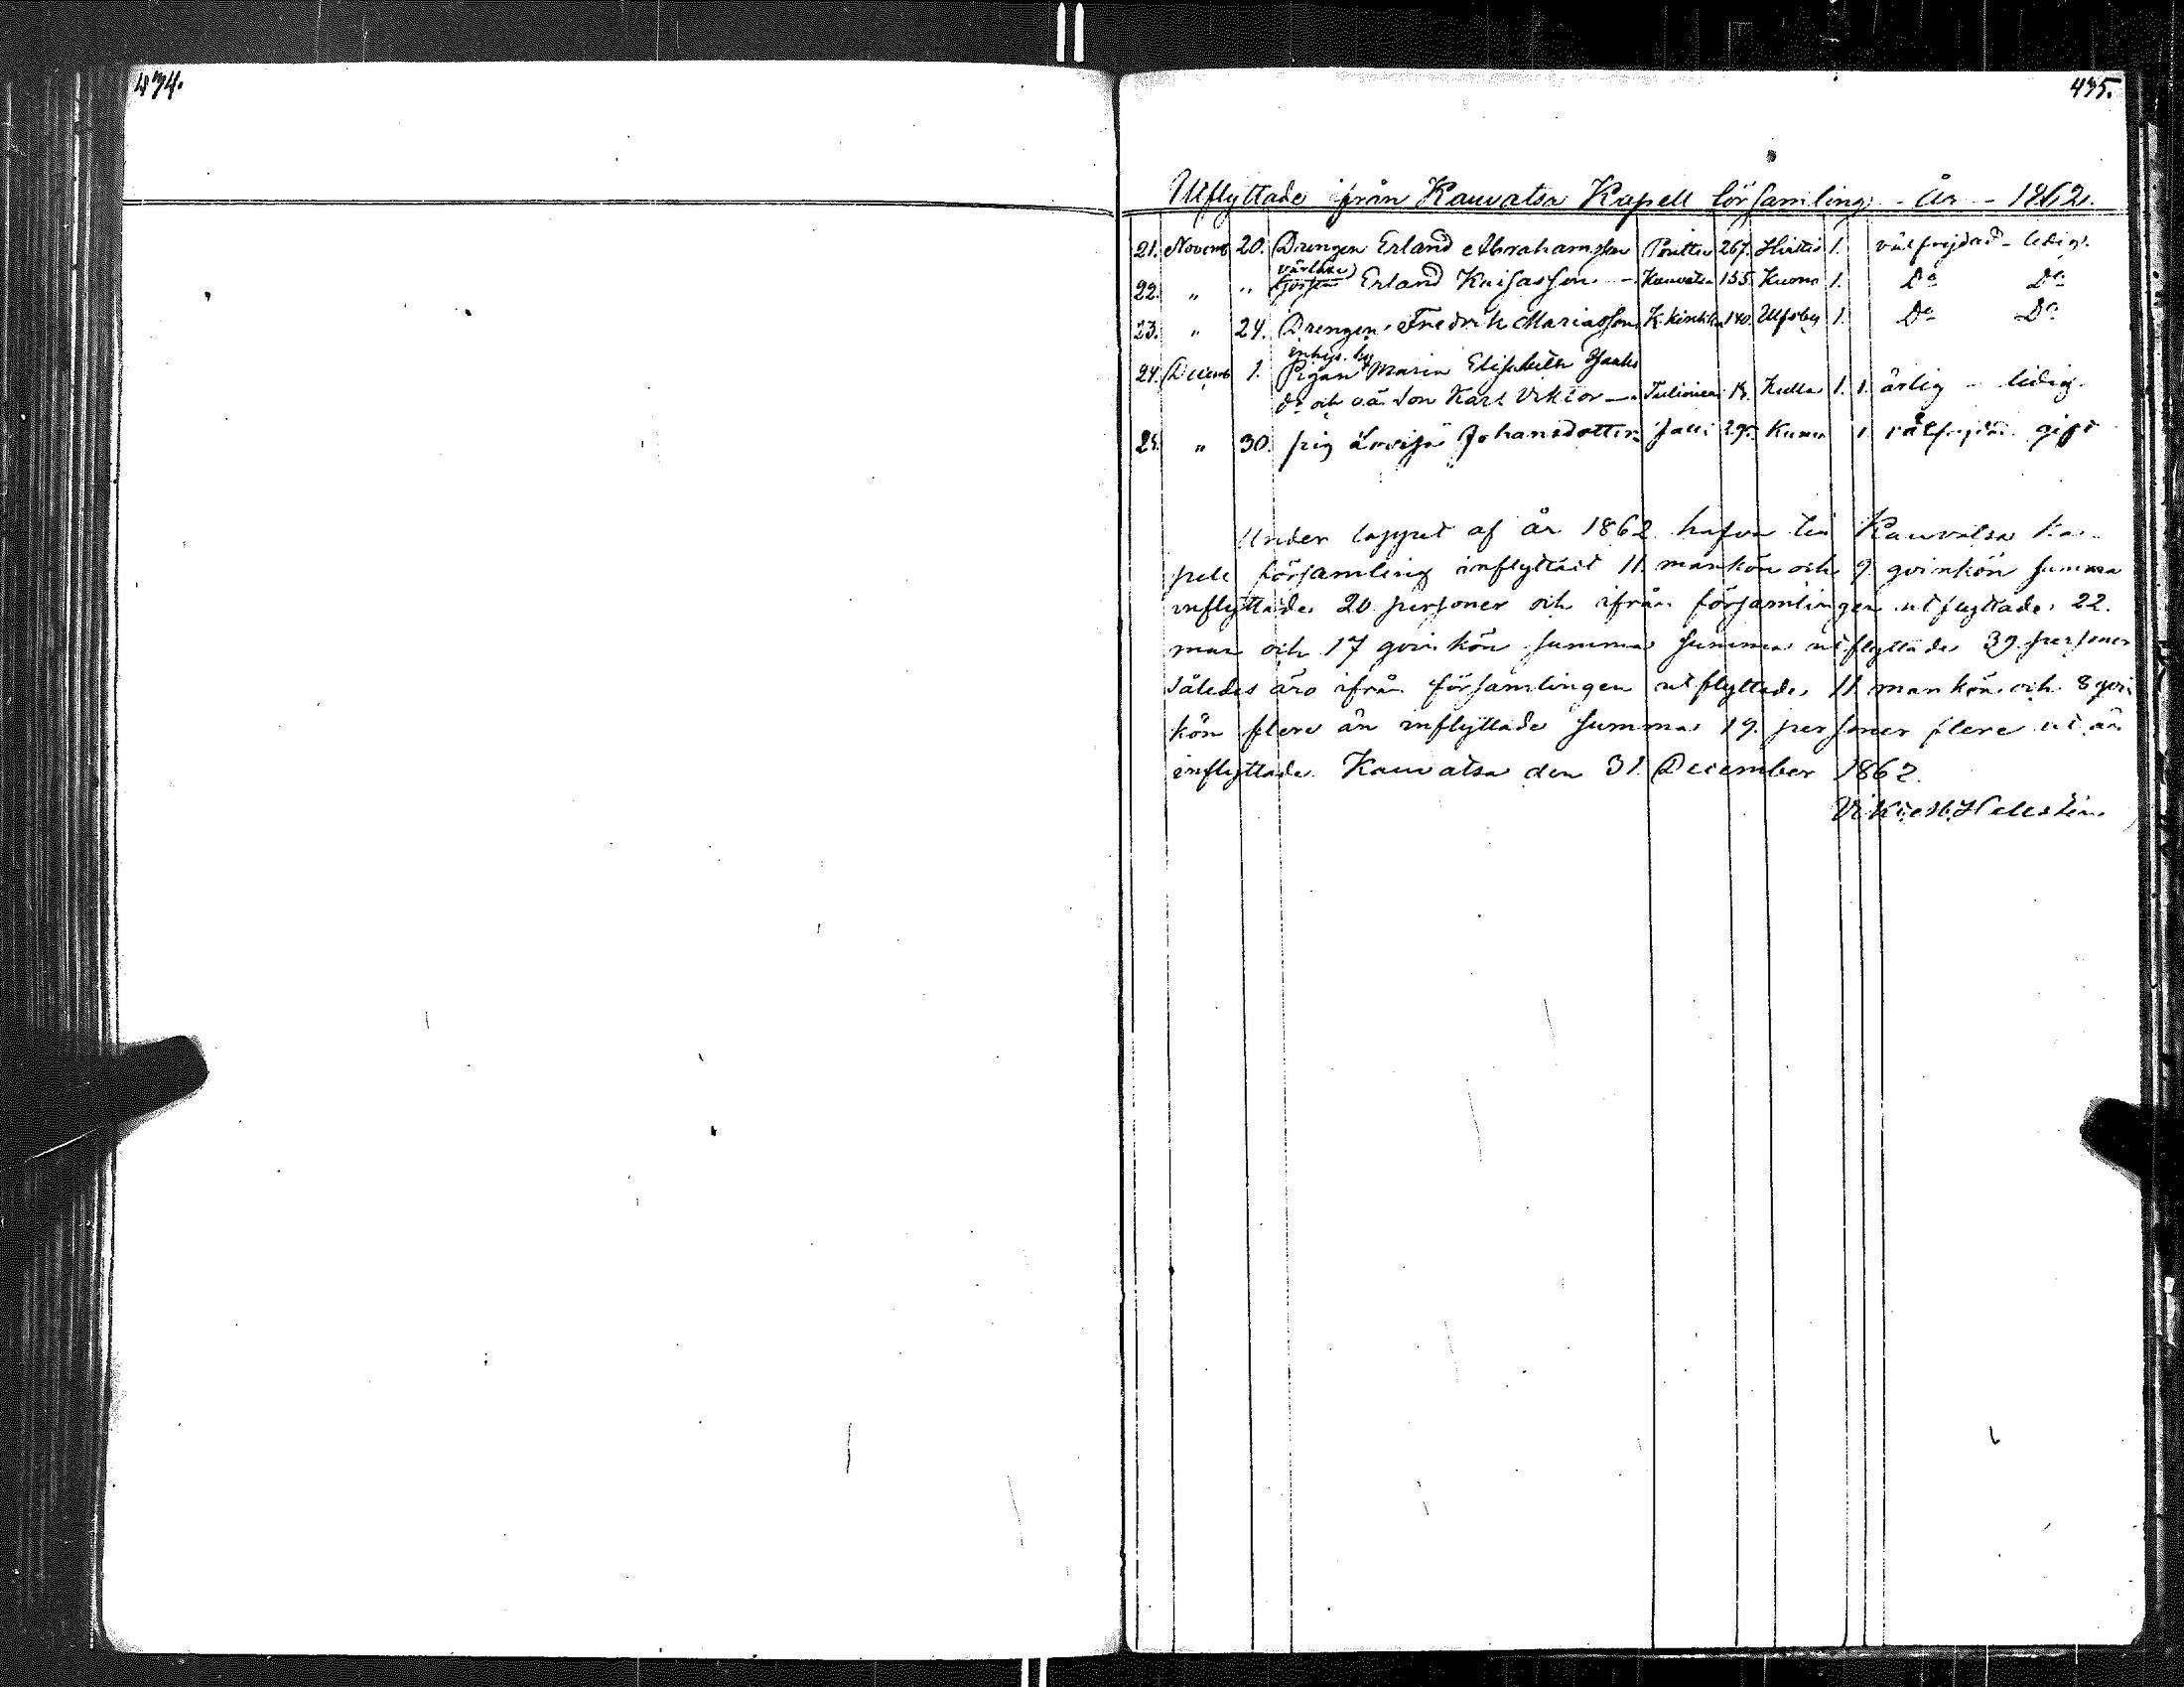 434.
435.
Utflyttade ifrån Kauvatsa Kapell församling - År - 1862.
21. Novemb 20. Drengen Erland Abrahamsson 267. 1. välfrejdad - ledig.
22. " " Erland Kaisasson - Kauvatsa 155. Kumo 1. Do Do
23. " 24. Drengen Fredrik Mariasson 140. Ulfsby 1. Do Do
inhys. hj
24. Decemb 1. Pigan Maria Elisabeth Isaks
dr och oä. Son Karl Viktor - Kulla 1. 1. ärlig - ledig.
25. " 30. pig Lovisa Johansdotter Jalli 295. Kumo 1. välfrejdad gift
Under loppet af år 1862 hafva till Kauvatsa Ka-
pell församling inflyttadt 11. mankön och 9. qvinkön summa
inflyttade 20. personer och ifrån församlingen utflyttade 22.
man och 17 qvinkön summa summa utflyttade 39. personer
således äro ifrån församlingen utflyttade 11. mankön och 8 qvin
kön flere än inflyttade summa 19. personer flere ut än
inflyttade. Kauvatsa den 31. December 1862.
Hellstén